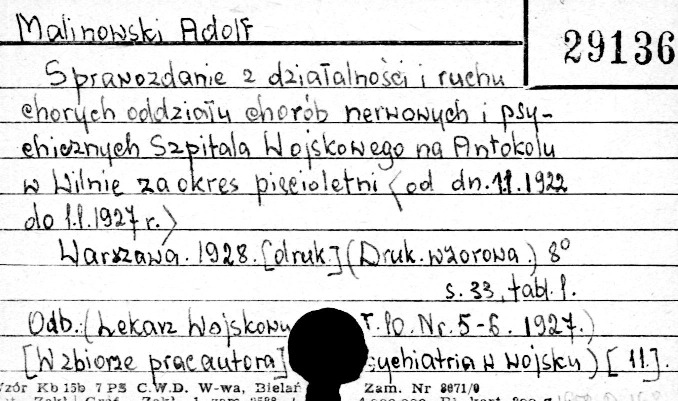 Malinowski Adolf
29136
Sprawozdanie z działalności i ruchu
chorych oddziału chorób nerwowych i psy-
chicznych Szpitala Wojskowego na Antokolu
w Wilnie za okres pięcioletni (od dn. 1.1.1922
do 1.1.1927 r.)
Warszawa. 1928. [druk.] (Druk. wzorowa.) 8°
s. 33, tabl. 1.
Odb.: (Lekarz Wojskowy T. 10. Nr. 5-6. 1927.)
[W zbiorze prac autora] sychiatria w wojsku) [11].
Wzór Kb 15b 7 PS C.W.D. W-wa, Bielań Zam. Nr 8671/9